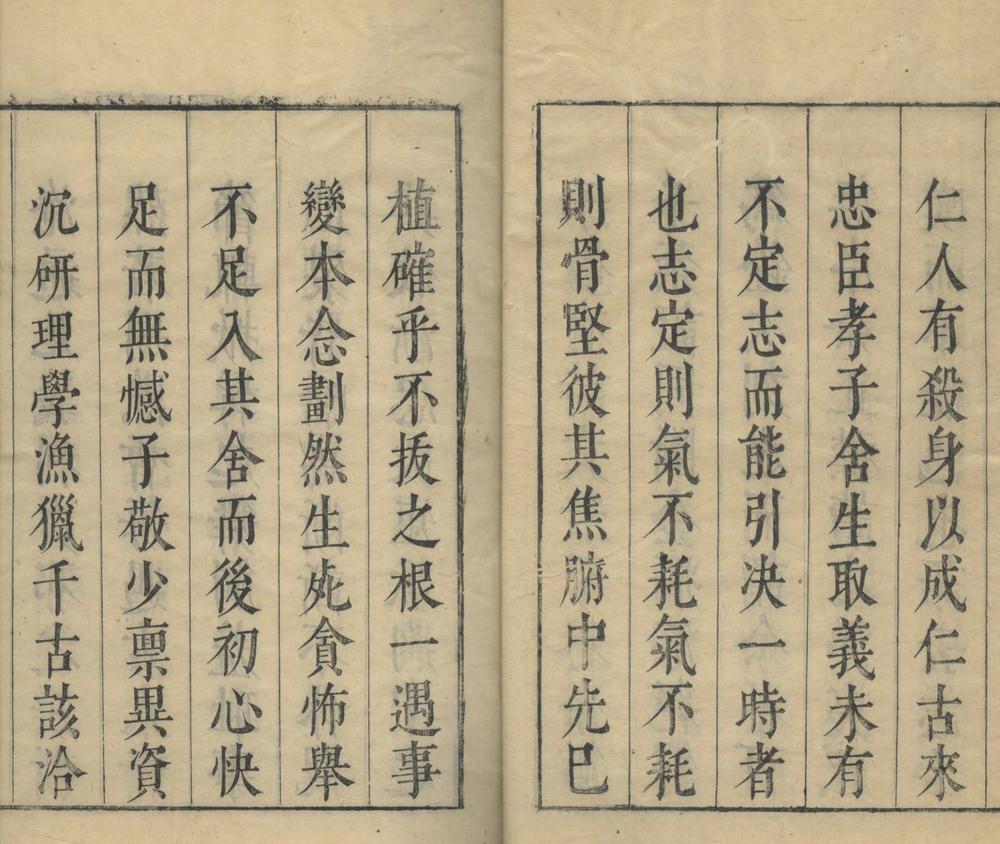 仁人有殺身以成仁古來
忠臣孝子舍生取義未有
不定志而能引决一時者
也志定則氣不耗氣不耗
則骨堅彼其焦腑中先已
植確乎不拔之根一遇事
變本念劃然生死貪怖舉
不足入其舍而後初心快
足而無憾子敬少稟異資
沉研理學漁獵千古該洽